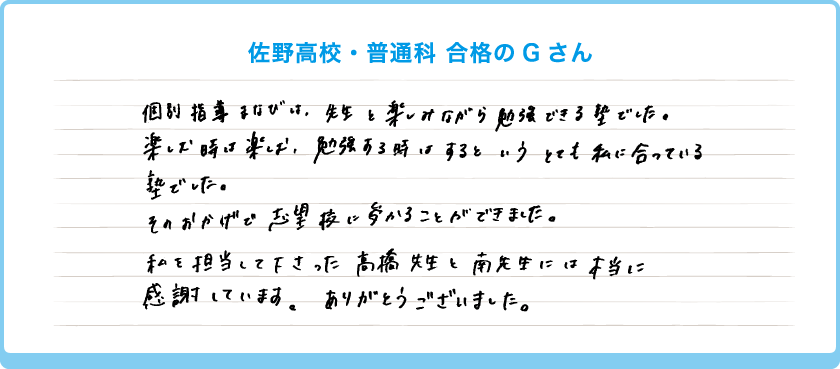 佐野高校・普通科 合格のGさん
個別指導まなびは、先生と楽しみながら勉強できる塾でした。
楽しむ時は楽しむ、勉強する時はするというとても私に合っている
塾でした。
そのおかげで志望校に受かることができました。
私を担当して下さった高橋先生と南先生には本当に
感謝しています。ありがとうございました。